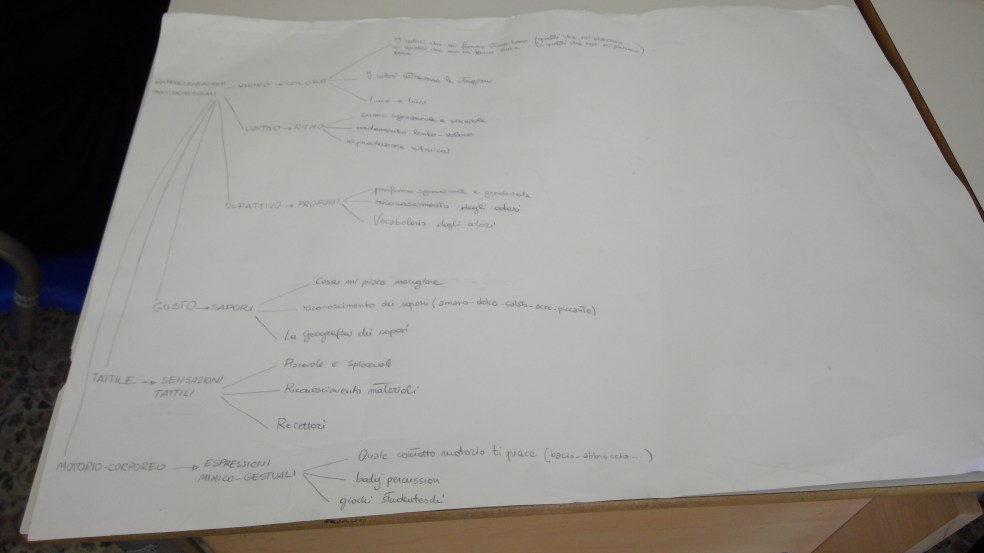 I colori che mi fanno stare bene (quelli che mi piacciono
e quelli che non mi fanno stare
bene
e quelli che non mi piacciono)
VISIVO → COLORE
I colori attraverso le stagioni
Luce e buio
UDITIVO → SUONO
suono gradevole e
riproduzione
OLFATTIVO → PROFUMI
profumo e
riconoscimento degli odori
Vocabolario degli odori
GUSTO → SAPORI
Cosa mi piace mangiare
riconoscimento dei sapori (amaro-dolce-salato-acre-piccante)
La geografia dei sapori
TATTILE → SENSAZIONI
TATTILI
Piacevole e spiacevole
Riconoscimento materiali
Recettori
MOTORIO-CORPOREO → ESPRESSIONI
MIMICO-GESTUALI
Quale contatto motorio ti piace (bacio-abbraccio...)
body percussion
giochi studenteschi